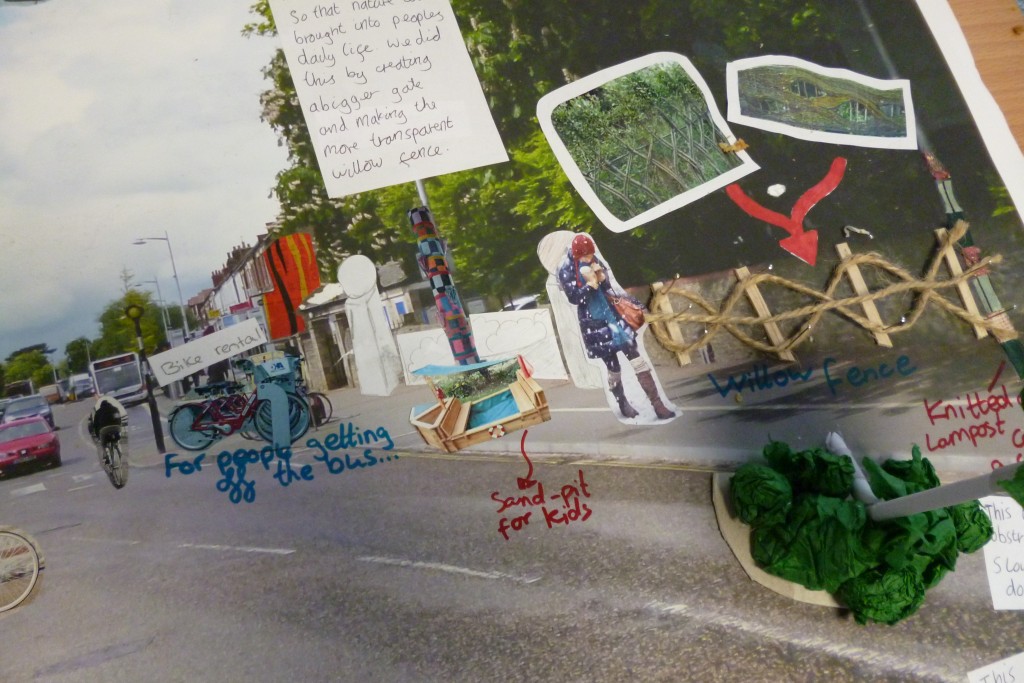 So that nature
brought into peoples
daily life. We did
this by creating
abigger gate
and making the
more transparent
willow fence.
Bike rental
For people getting
off the bus...
Sand-pit
for kids
Willow fence
Knitted
Lampost
This
obstr
Slow
do
This